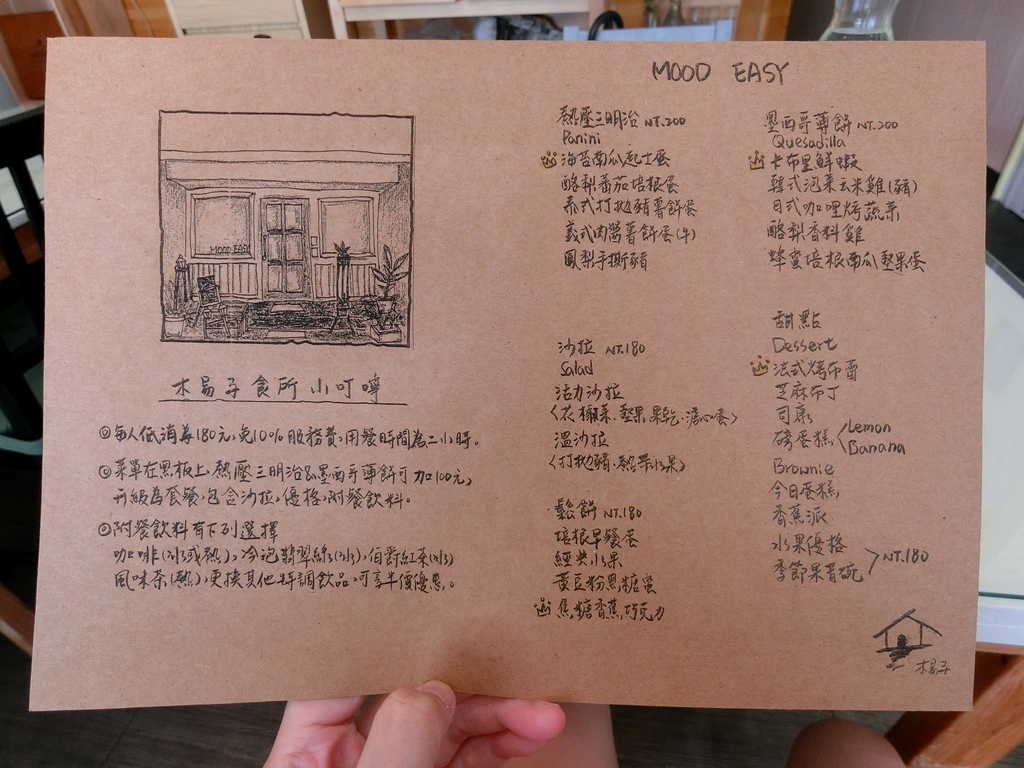 MOOD EASY
MOOD EASY
木易子食所小叮嚀
◎每人低消為180元,免10%服務費,用餐時間為二小時。
◎菜單在黑板上,熱壓三明治&墨西哥薄餅可加100元,
升級為套餐,包含沙拉,優格,附餐飲料。
◎附餐飲料有下列選擇
咖啡(冰或熱),冷泡翡翠綠(冰),伯爵紅茶(冰)
風味茶(熱),更換其他特調飲品,可享半價優惠。
熱壓三明治 NT.200
Panini
海苔南瓜起士蛋
酪梨番茄培根蛋
泰式打拋豬薯餅蛋
義式肉醬薯餅蛋(牛)
鳳梨手撕豬
沙拉 NT.180
Salad
活力沙拉
<花椰菜.堅果.果乾.溏心蛋>
溫沙拉
<打拋豬.熱帶水果>
鬆餅 NT.180
培根早餐蛋
經典水果
黃豆粉黑糖蜜
焦糖香蕉巧克力
墨西哥薄餅 NT.200
Quesadilla
卡布里鮮蝦
韓式泡菜玉米雞(豬)
日式咖哩烤蔬菜
酪梨香料雞
蜂蜜培根南瓜堅果蛋
甜點
Dessert
法式烤布蕾
芝麻布丁
司康
磅蛋糕 Lemon
Banana
Brownie
今日蛋糕
香蕉派
水果優格
季節果昔碗 NT.180
木易子